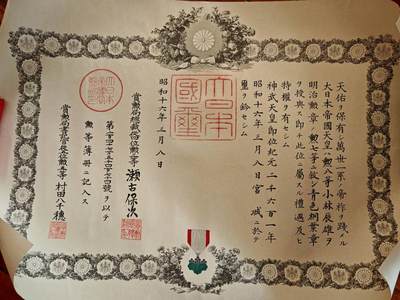 天佑ヲ保有シ萬世一系ノ帝祚ヲ踐タル
大日本帝國天皇ハ勲八等小林辰雄ヲ
明治勲章ノ勲七等ニ敍シ青色桐葉章
ヲ授與ス即チ此位ニ屬スル禮遇及ヒ
特權ヲ有セシム
神武天皇即位紀元二千六百一年
昭和十六年三月八日宮城ニ於テ
璽ヲ鈐セシム
大日本國璽
昭和十六年三月八日
賞勲局總裁 瀬古保次
號ヲ以テ
勲等簿册ニ記入ス
賞勲局書記官 村田八千穂